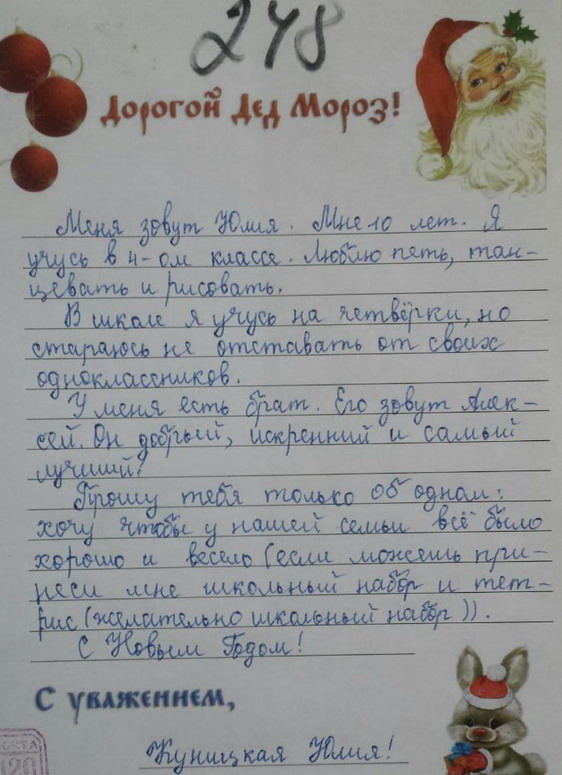 248
Дорогой Дед Мороз!
Меня зовут Юлия. Мне 10 лет. Я
учусь в 4-ом классе. Люблю петь, тан-
цевать и рисовать.
В школе я учусь на четвёрки, но
стараюсь не отставать от своих
одноклассников.
У меня есть брат. Его зовут Алек-
сей. Он добрый, искренний и самый
лучший!
Прошу тебя только об одном:
хочу чтобы у нашей семьи всё было
хорошо и весело (если можешь при-
неси мне школьный набор и тет-
рис (желательно школьный набор)).
С Новым Годом!
С уважением,
Куницкая Юлия!
120